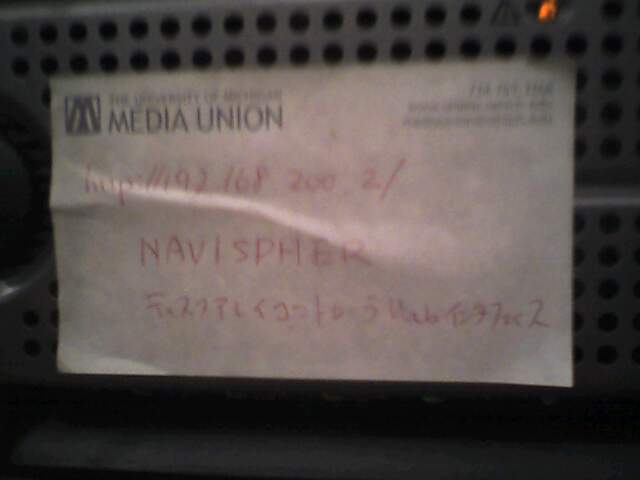 THE UNIVERSITY OF MICHIGAN
MEDIA UNION
http://192.168.200.2/
NAVISPHER
ディスクアレイコントローラWebインタフェイス